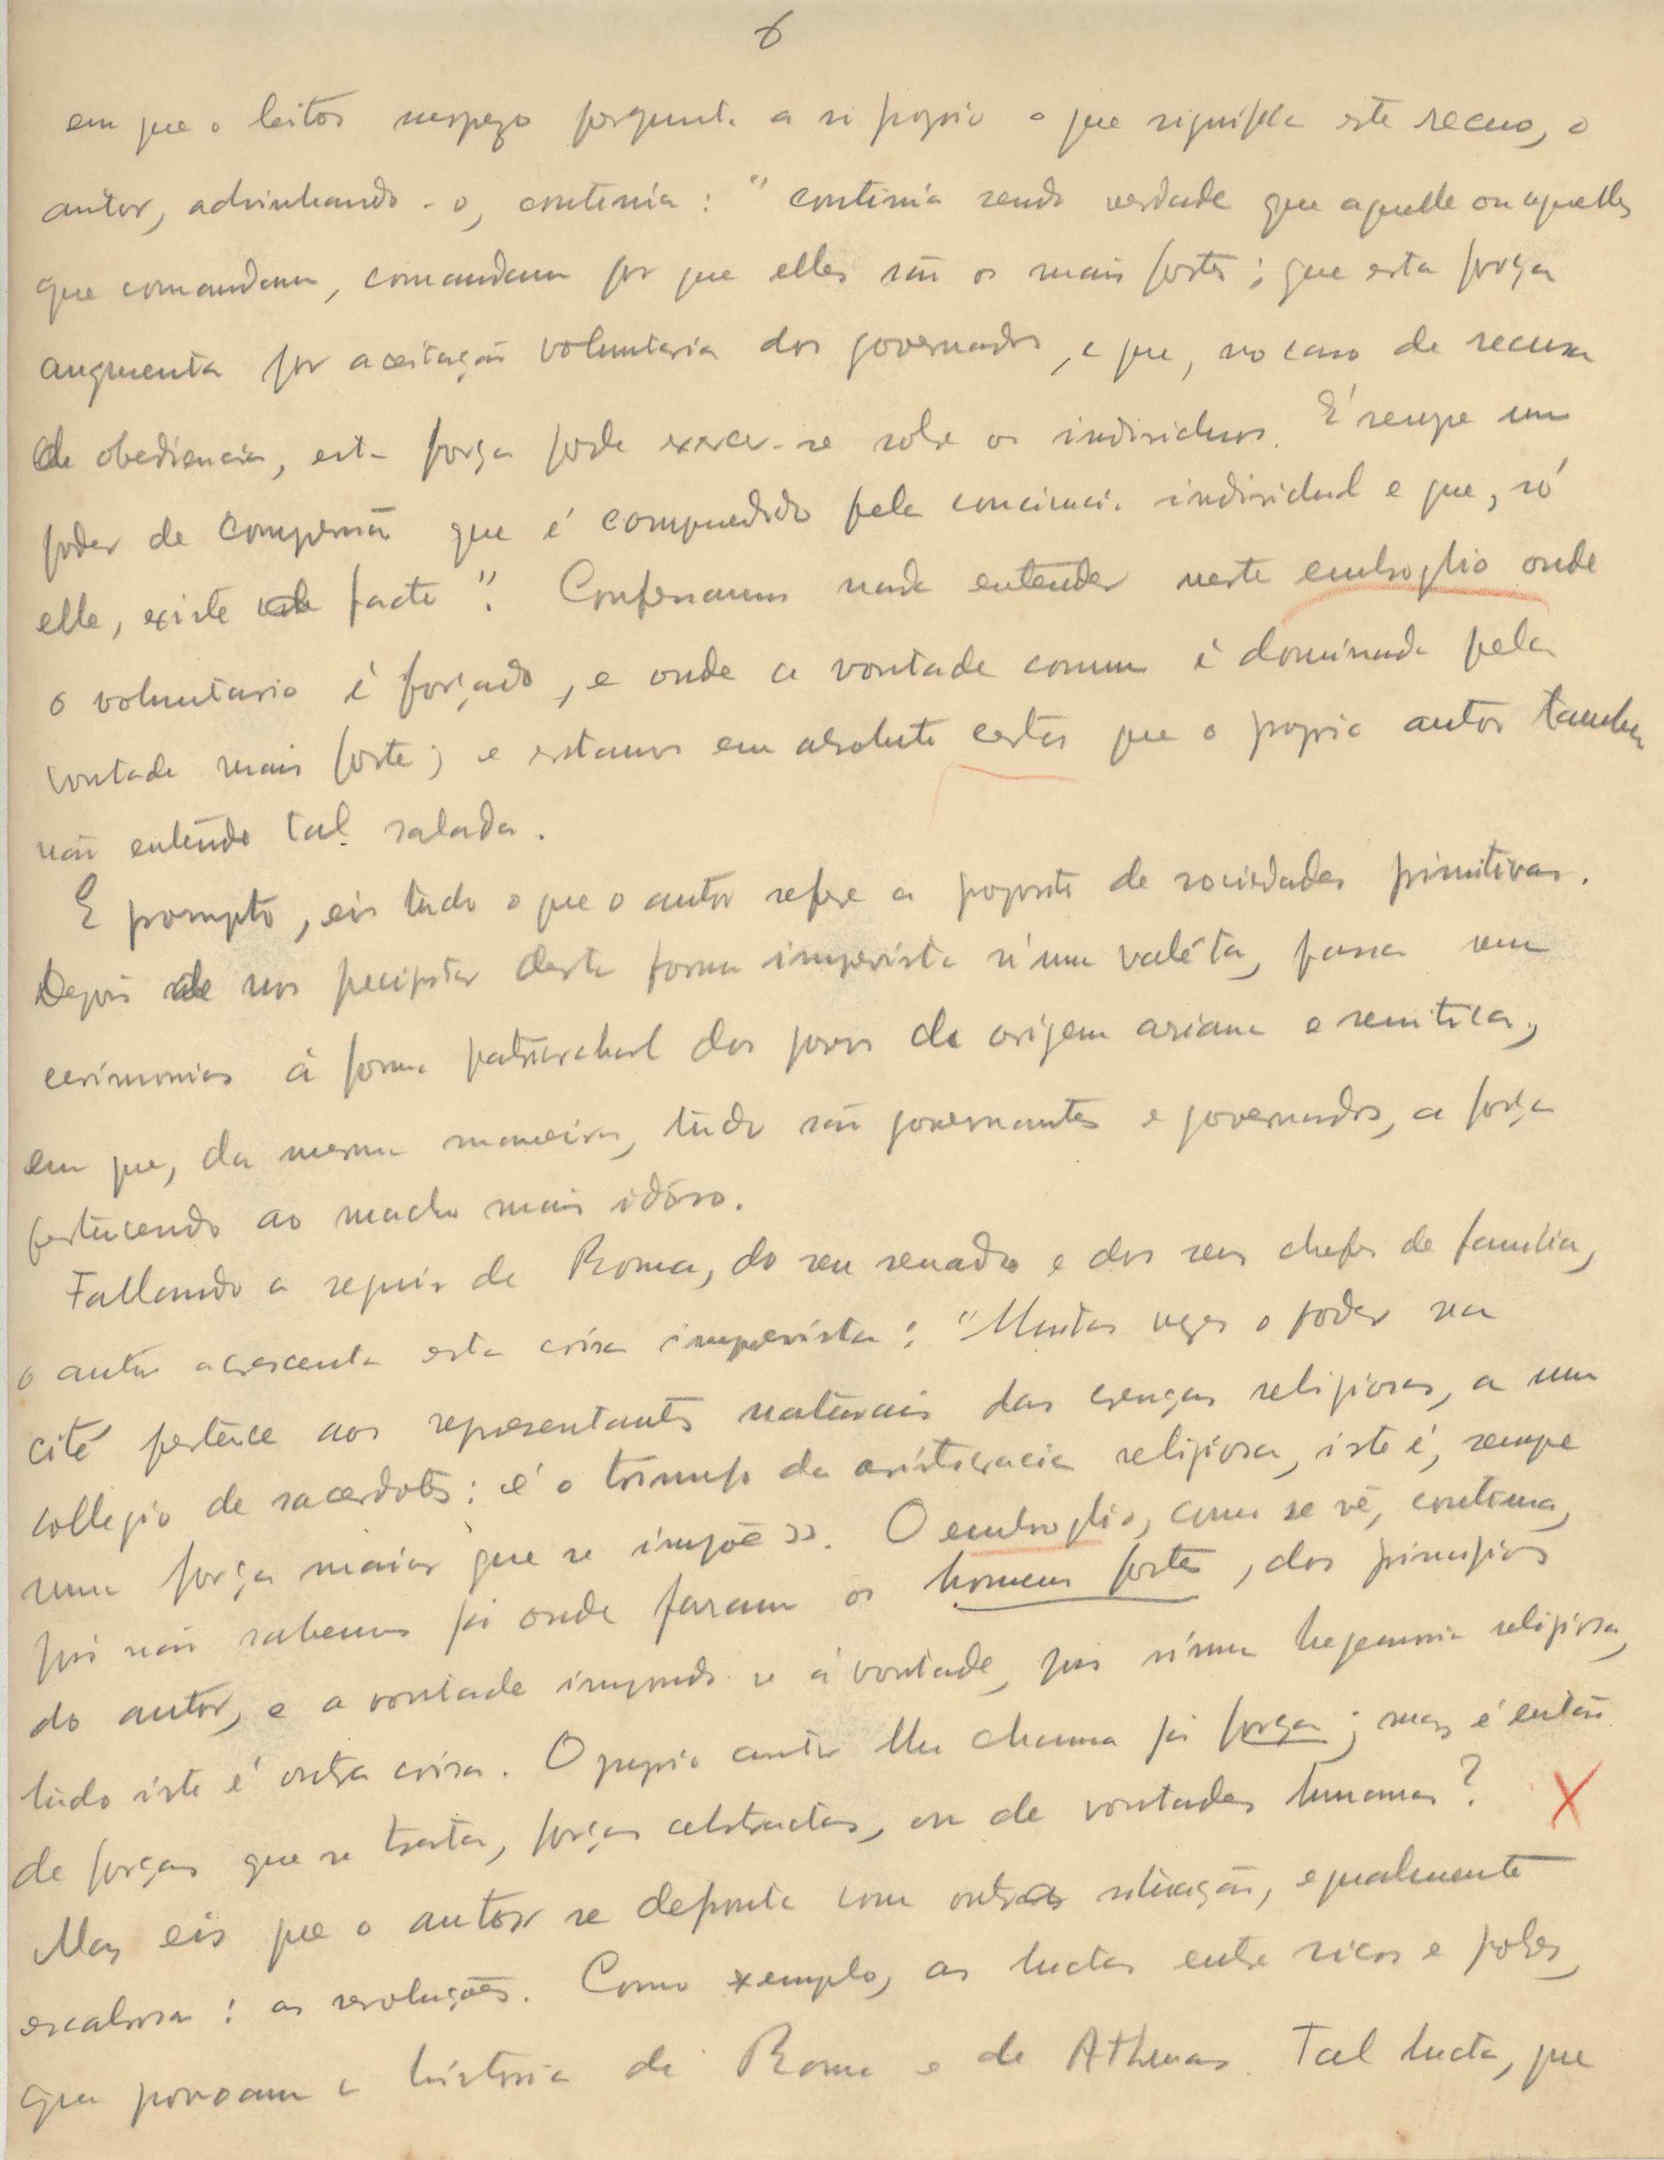 6
em que o leitor surpreso pergunta a si proprio o que significa este recuo, o
autor, advinhando-o, continúa: "continúa sendo verdade que aquelle ou aquelles
que comandam, comandam por que elles são os mais fortes; que esta força
augmenta por aceitação voluntaria dos governados, e que, no caso de recusa
de obediencia, esta força pode exercer-se sobre os individuos. É sempre um
poder de compressão que é comprendido pela conciencia individual e que, só
elle, existe de facto". Confessamos nada entender neste embroglio onde
o voluntario é forçado, e onde a vontade comum é dominada pela
vontade mais forte; e estamos em absoluto certos que o proprio autor tambem
não entende tal salada.
E prompto, eis tudo o que o autor refere a proposito de sociedades primitivas.
Depois de nos precipitar desta forma imprevista n'uma valêta, passa sem
cerimonias á forma patriarchal dos povos de origem ariana e semitica,
em que, da mesma maneira, tudo são governantes e governados, a força
pertencendo ao macho mais idôso.
Fallando a seguir de Roma, do seu senado e dos seus chefes de familia,
o autor acrescenta esta coisa imprevista: "Muitas vezes o poder na
cité pertence aos representantes naturais das crenças religiosas, a um
collegio de sacerdotes: é o triumpho da aristocracia religiosa, isto é, sempre
uma força maior que se impõe». O embroglio, como se vê, continua,
pois não sabemos já onde param os homens fortes, dos principios
do autor, e a vontade impondo-se á vontade, pois n'uma hegemonia religiosa,
tudo isto é outra coisa. O proprio autor lhe chama já força; mas é então
de forças que se trata, forças abstractas, ou de vontades humanas? X
Mas eis que o autor se depronta com outra situação, egualmente
escabrosa: as revoluções. Como exemplo, as luctas entre ricos e pobres,
que povoam a historia de Roma e de Athenas. Tal lucta, que